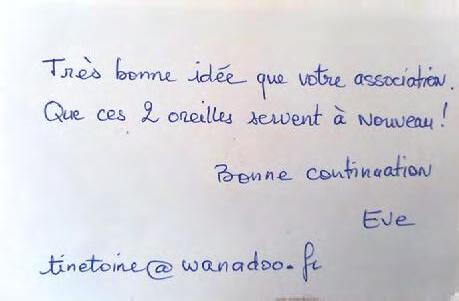 Très bonne idée que votre association.
Que ces 2 oreilles servent à nouveau !
Bonne continuation
Eve
tinetoine@wanadoo.fr